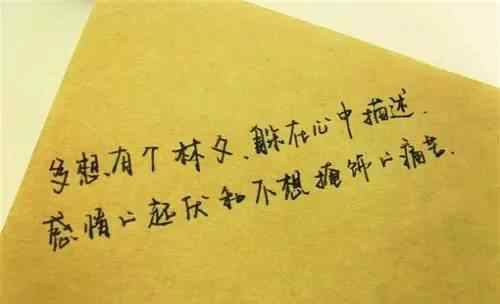 多想有个林夕、躲在心中描述.
感情的起伏和不想掩饰的痛苦.